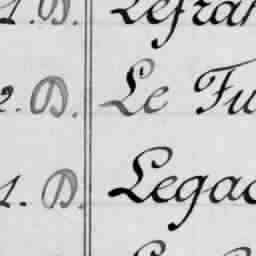 1. D. Lefra
2. D. Le Fu
1. D. Legac